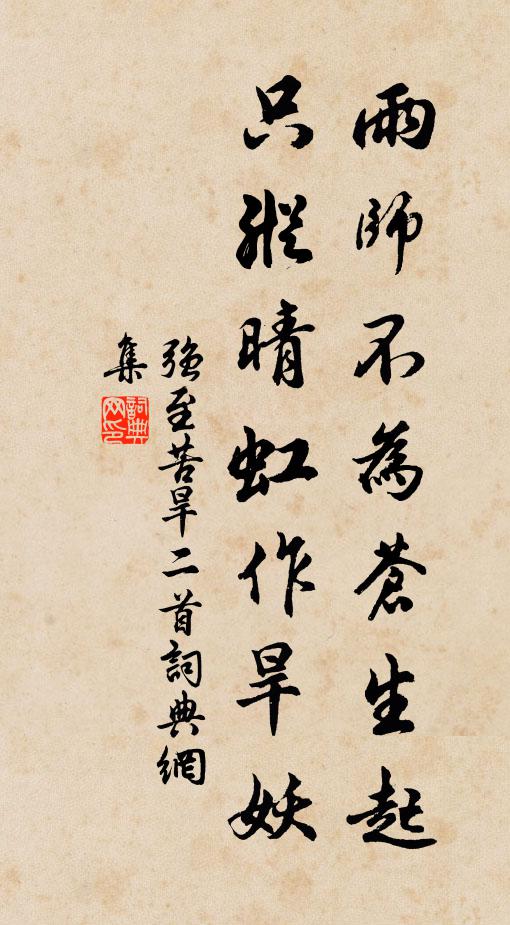 雨師不為蒼生起
只縱晴虹作旱妖
強至苦旱二首詞典網
集
詞典
網印